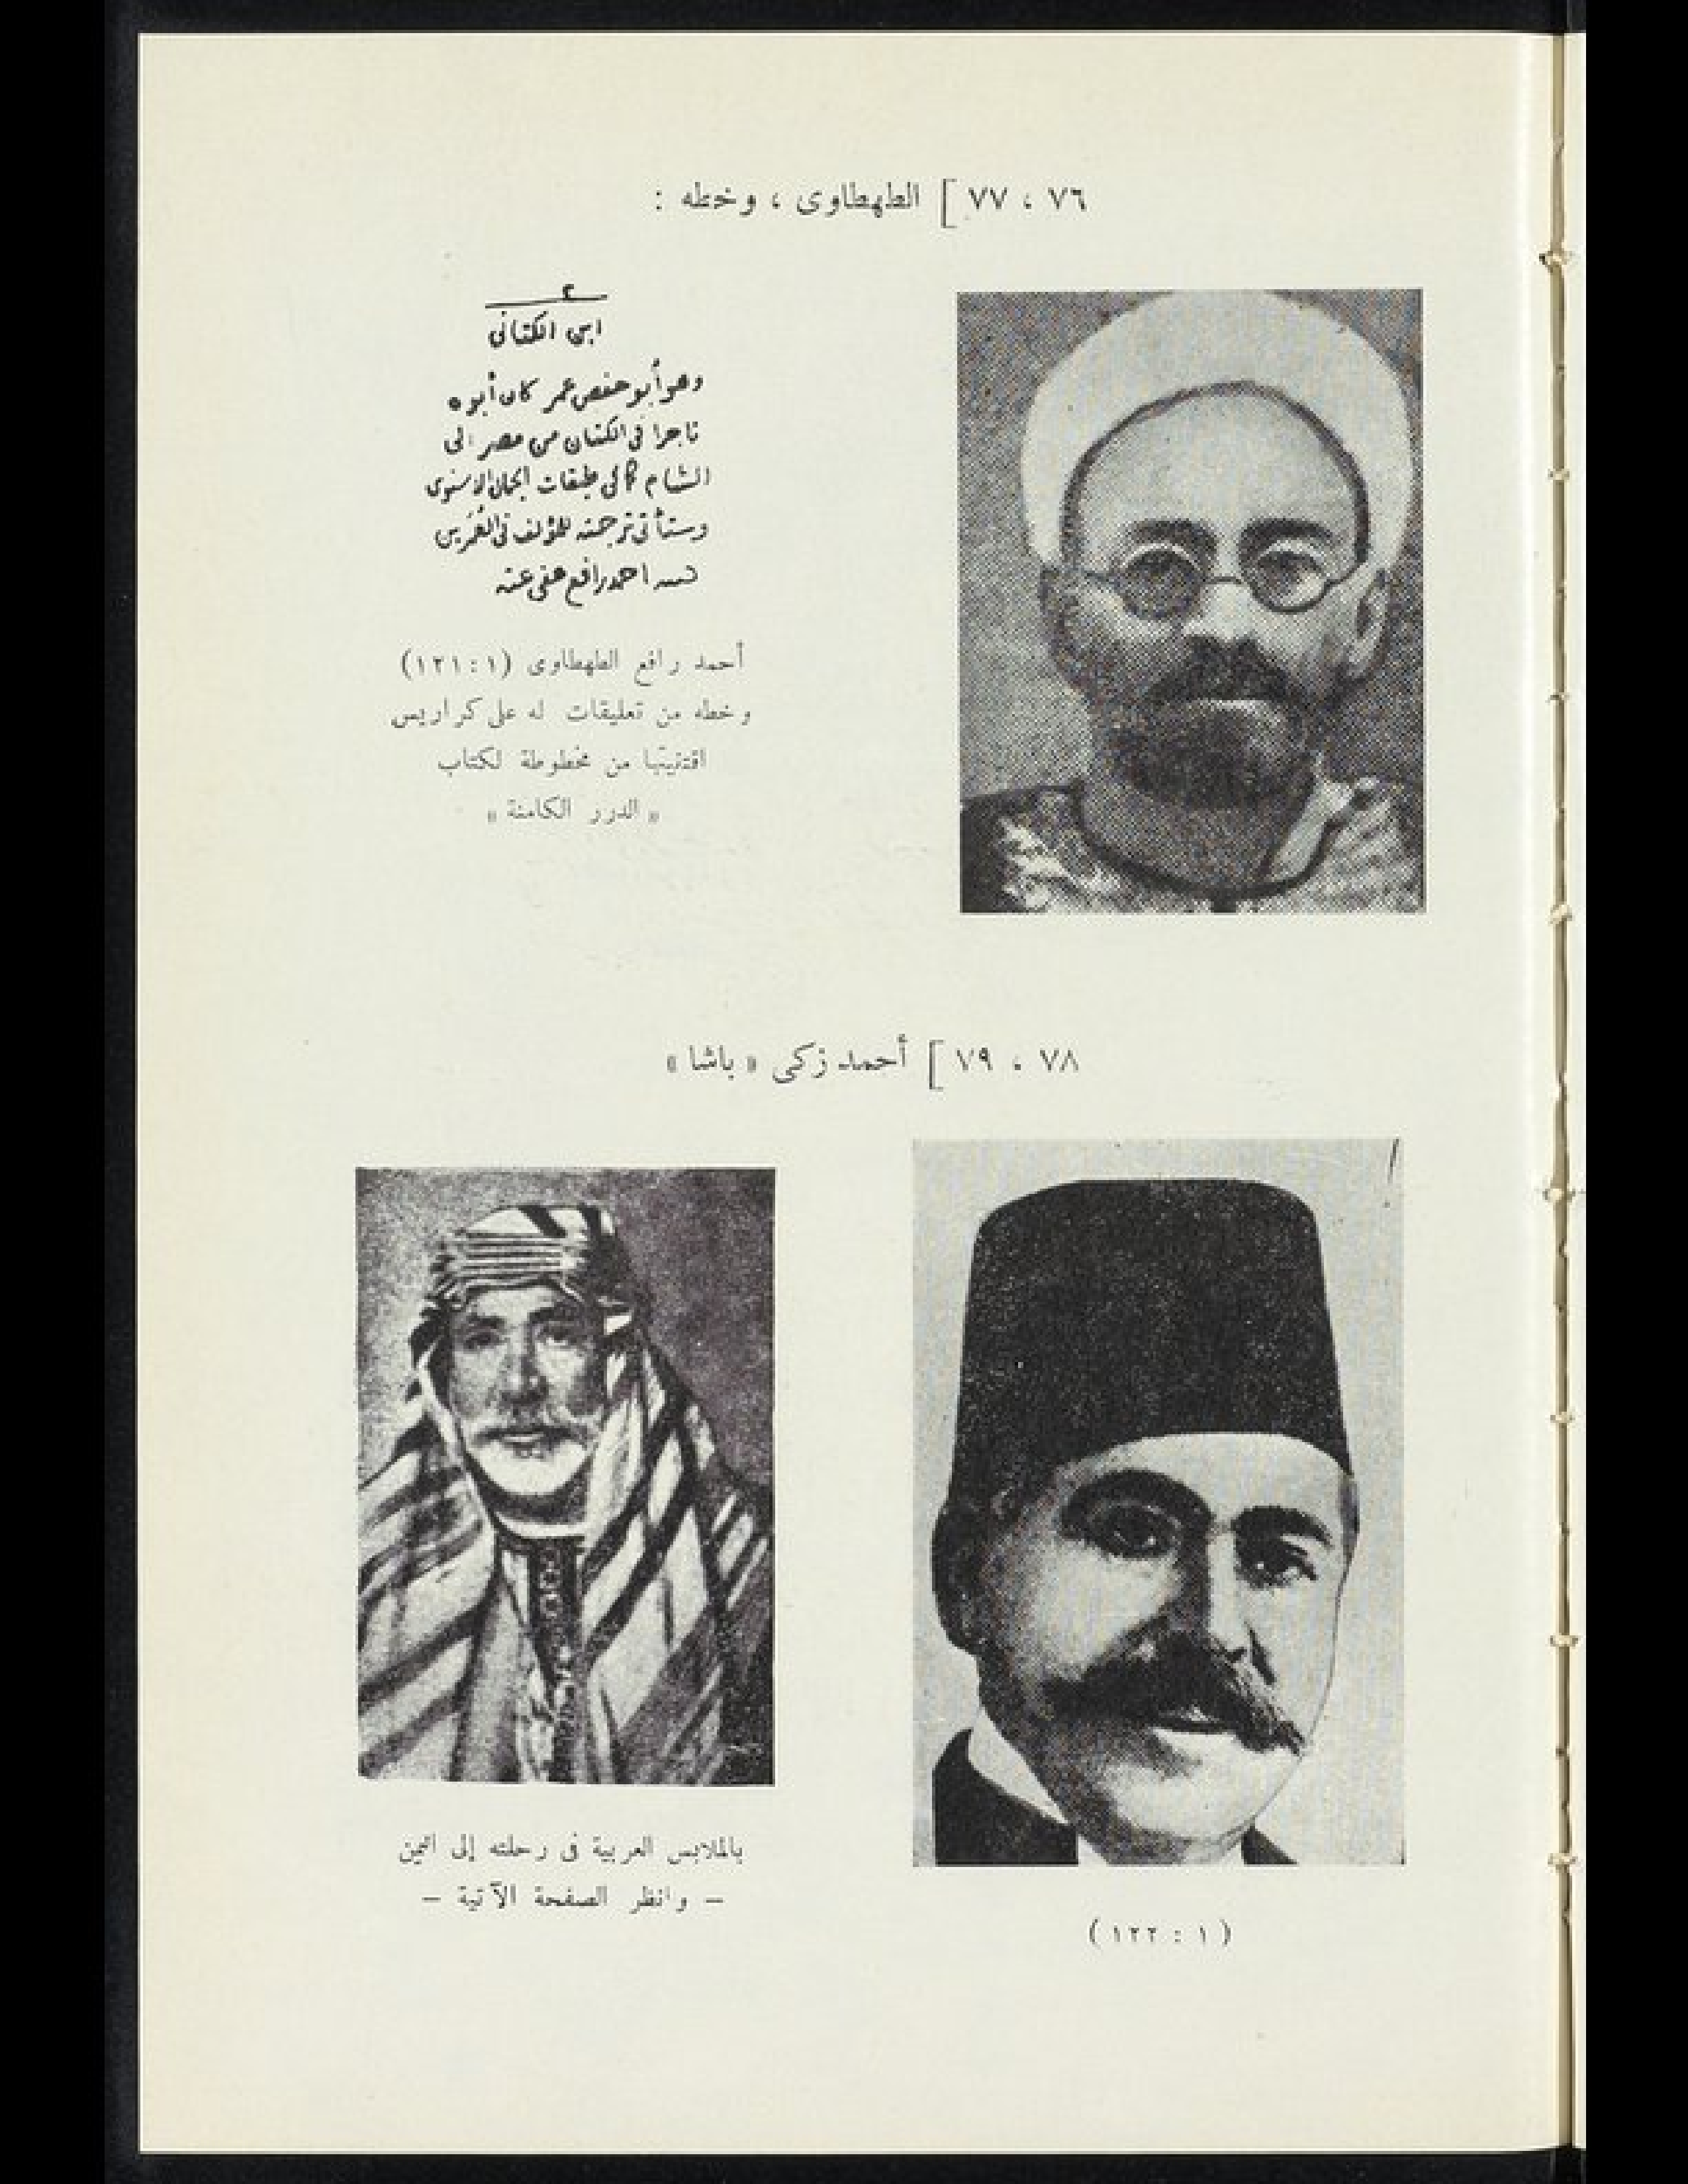 ٧٦ ، ٧٧ ] الطهطاوى ، وخطه :
٢
ابن الكتانى
وهو أبو حفص عمر كان أبوه
تاجرا فى الكتان من مصر الى
الشام كما فى طبقات الجمال الاسنوى
وستأتى ترجمته للمؤلف فى العُمَرين
احمد رافع عفى عنه
أحمد رافع الطهطاوى (١ : ١٢١)
وخطه من تعليقات له على كراريس
اقتنيتها من مخطوطة لكتاب
« الدرر الكامنة »
٧٨ ، ٧٩ ] أحمد زكى « باشا »
بالملابس العربية فى رحلته إلى اليمن
– وانظر الصفحة الآتية –
( ١ : ١٢٢ )